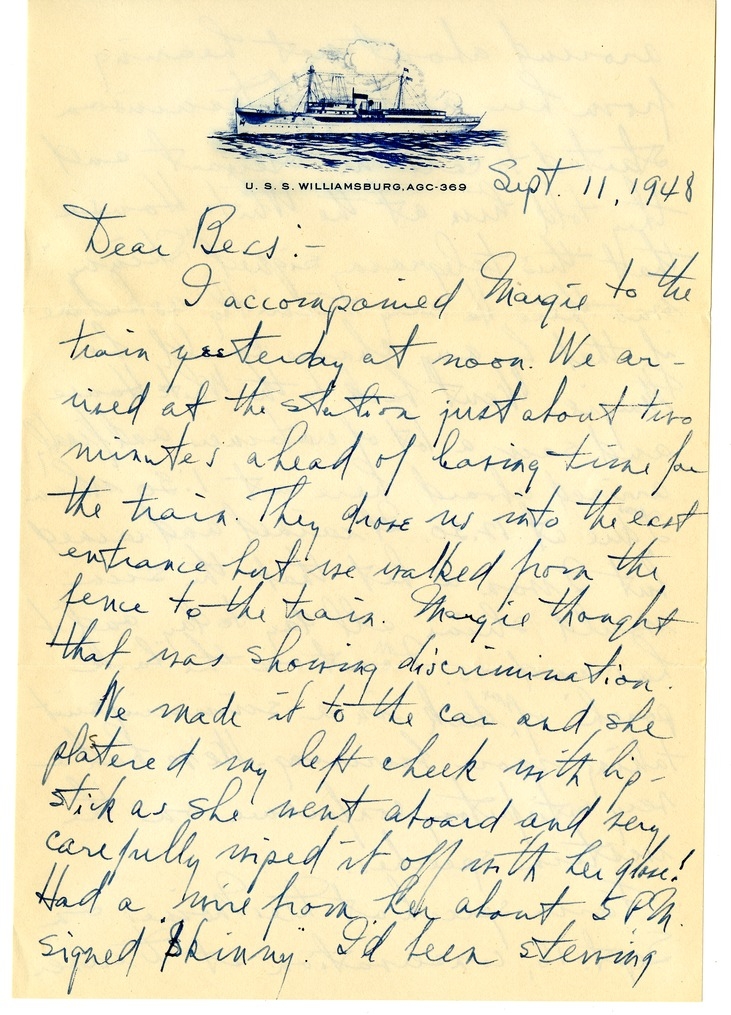 U. S. S. WILLIAMSBURG, AGC-369
Sept. 11, 1948
Dear Bess:-
I accompanied Margie to the
train yesterday at noon. We ar-
rived at the station just about two
minutes ahead of leaving time for
the train. They drove us into the east
entrance but we walked from the
fence to the train. Margie thought
that was showing discrimination.
We made it to the car and she
plastered my left cheek with lip-
stick as she went aboard and very
carefully wiped it off with her glove!
Had a wire from her about 5 P.M.
signed "Skinny". I'd been stewing